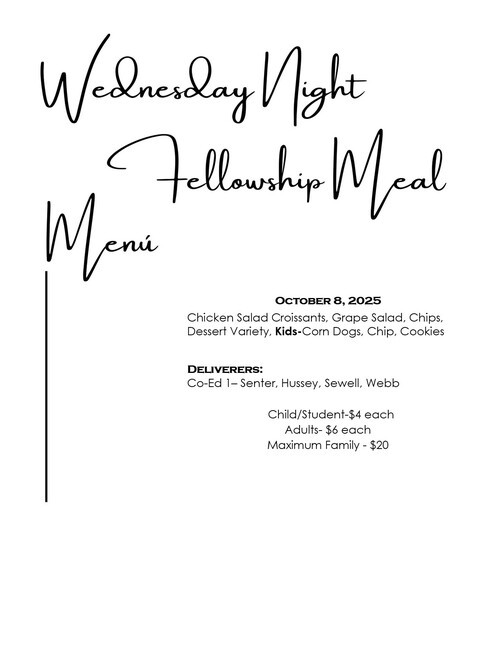 Wednesday Night
Fellowship Meal
Menú
October 8, 2025
Chicken Salad Croissants, Grape Salad, Chips,
Dessert Variety, Kids-Corn Dogs, Chip, Cookies
Deliverers:
Co-Ed 1– Senter, Hussey, Sewell, Webb
Child/Student-$4 each
Adults- $6 each
Maximum Family - $20